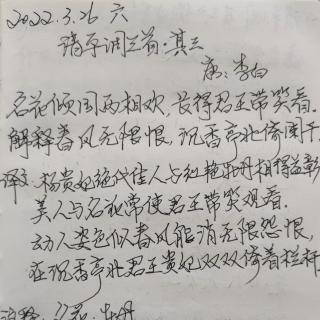 2022.3.26 六
清平调三首·其三
唐:李白
名花倾国两相欢,长得君王带笑看.
解释春风无限恨,沉香亭北倚阑干
译文:杨贵妃绝代佳人与红艳牡丹相得益彰
美人与名花常使君王带笑观看.
动人姿色似春风能消无限怨恨,
在沉香亭北君王贵妃双双倚着栏杆
注释:名花:牡丹